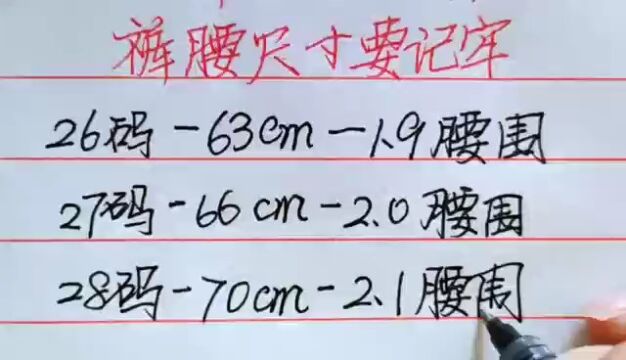 裤腰尺寸要记牢
26码-63cm-1.9腰围
27码-66cm-2.0腰围
28码-70cm-2.1腰围